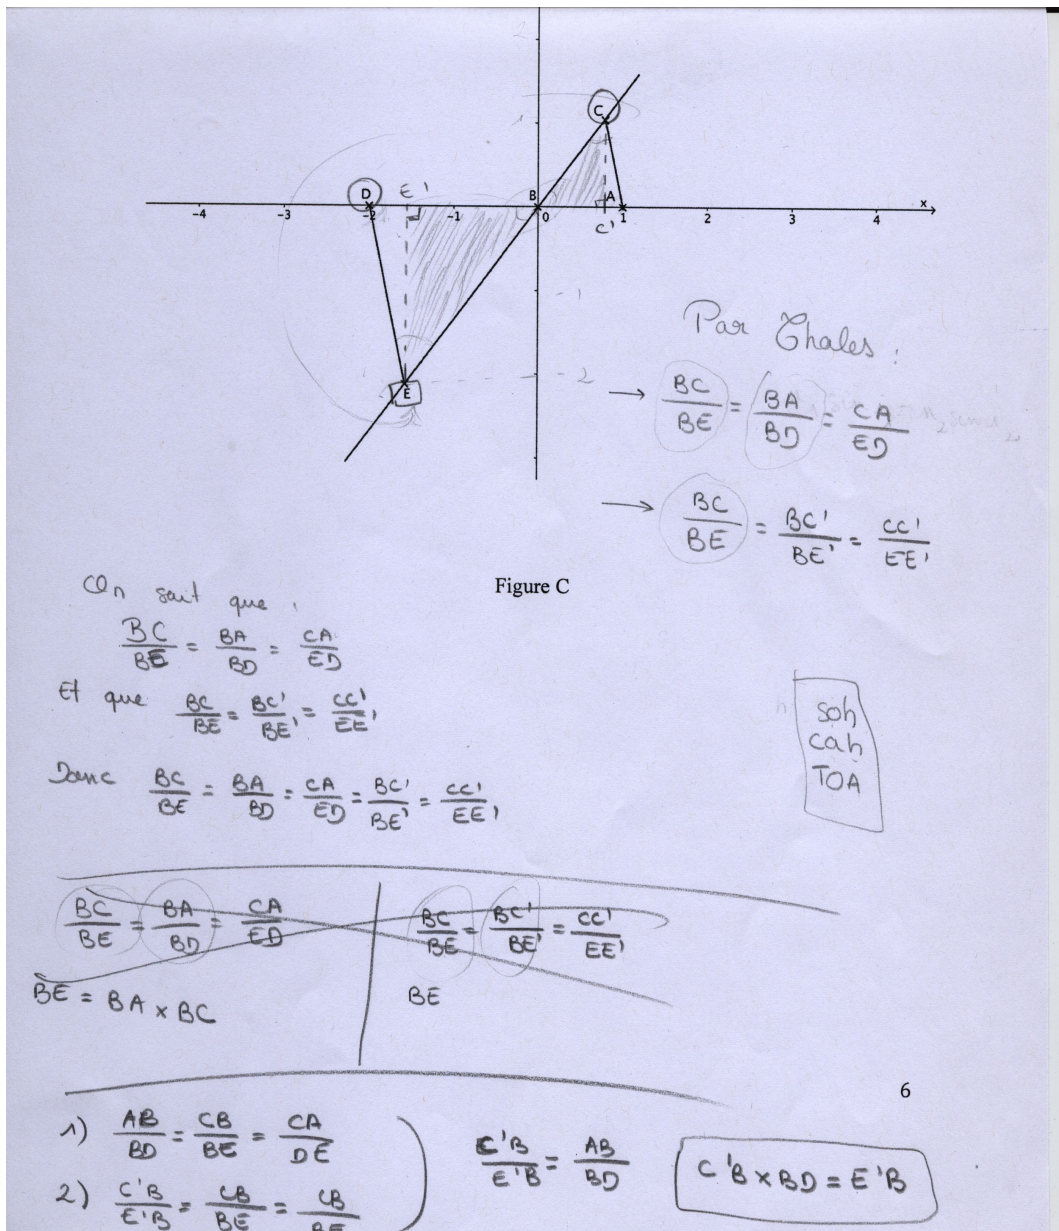 2
C
1
D E' B A x
-4 -3 -2 -1 0 1 2 3 4
C'
-1
E
-2
Par Thales :
→ BC/BE = BA/BD = CA/ED
→ BC/BE = BC'/BE' = CC'/EE'
Figure C
On sait que :
BC/BE = BA/BD = CA/ED
Et que BC/BE = BC'/BE' = CC'/EE'
Donc BC/BE = BA/BD = CA/ED = BC'/BE' = CC'/EE'
soh
cah
TOA
BC/BE = BA/BD = CA/ED
BE = BA x BC
BC/BE = BC'/BE' = CC'/EE'
BE
6
1) AB/BD = CB/BE = CA/DE
2) C'B/E'B = CB/BE = CB/BE
C'B/E'B = AB/BD
C'B x BD = E'B